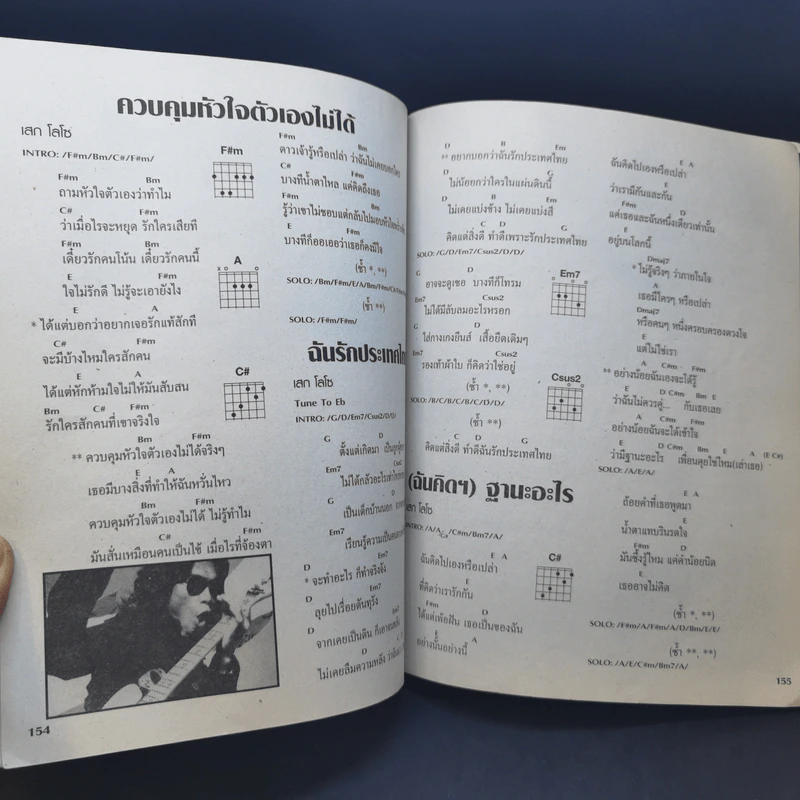 ควบคุมหัวใจตัวเองไม่ได้
เสก โลโซ
INTRO: /F#m/Bm/C#/F#m/
F#m
F#m Bm
ถามหัวใจตัวเองว่าทำไม
C# F#m
ว่าเมื่อไรจะหยุด รักใครเสียที
F#m Bm
เดี๋ยวรักคนโน้น เดี๋ยวรักคนนี้
E F#m
ใจไม่รักดี ไม่รู้จะเอายังไง
A
E A
* ได้แต่บอกว่าอยากเจอรักแท้สักที
C# F#m
จะมีบ้างไหมใครสักคน
C#
E A
ได้แต่หักห้ามใจไม่ให้มันสับสน
Bm C# F#m
รักใครสักคนที่เขาจริงใจ
Bm F#m
** ควบคุมหัวใจตัวเองไม่ได้จริงๆ
E A
เธอมีบางสิ่งที่ทำให้ฉันหวั่นไหว
Bm F#m
ควบคุมหัวใจตัวเองไม่ได้ ไม่รู้ทำไม
C# F#m
มันสั่นเหมือนคนเป็นไข้ เมื่อไรที่จ้องตา
154
F#m Bm
ดาวเจ้ารู้หรือเปล่า ว่าฉันไม่เคย
C# F#m
บางทีน้ำตาไหล แค่คิดถึงเธอ
F#m Bm
รู้ว่าเขาไม่ชอบแต่กลับไปมอบหัวใจ
C# F#m
บางทีก็ออเออว่าเธอก็คงมีใจ
(ซ้ำ *, **)
SOLO: /Bm/F#m/E/A/Bm/F#m/
(ซ้ำ **)
SOLO: /F#m/F#m/
ฉันรักประเทศไทย
เสก โลโซ
Tune To Eb
INTRO: /G/D/Em7/Csus2/D/D/
G D
ตั้งแต่เกิดมา
Em7
ไม่ได้กลัวอะไร
G D
เป็นเด็กบ้านนอก
Em7
เรียนรู้ความเป็น
D Em7
* จะทำอะไร ก็ทำจริงจัง
D
ลุยไปเรื่อยดันทุรัง
D
จากเคยเป็นดิน
D
ไม่เคยลืมความหลัง
D B Em
** อยากบอกว่าฉันรักประเทศไทย
D G
ไม่น้อยกว่าใครในแผ่นดินนี้
B Em
ไม่เคยแบ่งข้าง ไม่เคยแบ่งสี
C D G
คิดแต่สิ่งดี ทำดีเพราะรักประเทศไทย
SOLO: /G/D/Em7/Csus2/D/D/
G D
อาจจะดูเซอ บางทีก็โทรม
Em7 Csus2
ไม่ได้มีลับลมอะไรหรอก
Em7
G D
ใส่กางเกงยีนส์ เสื้อยืดเดิมๆ
Em7 Csus2
รองเท้าผ้าใบ ก็คิดว่าใช่อยู่
(ซ้ำ *, **)
SOLO: /B/C/B/C/B/C/D/D/
Csus2
(ซ้ำ **)
C D G
คิดแต่สิ่งดี ทำดีฉันรักประเทศไทย
(ฉันคิดฯ) ฐานะอะไร
เสก โลโซ
E A
ฉันคิดไปเองหรือเปล่า
C#
E
ที่คิดว่าเรารักกัน
F#m D
ได้แต่เพ้อฝัน เธอเป็นของฉัน
A
อย่างนั้นอย่างนี้
E A
ฉันคิดไปเองหรือเปล่า
E
ว่าเรามีกันและกัน
F#m D
แค่เธอและฉันหนึ่งเดียวเท่านั้น
A
อยู่บนโลกนี้
Dmaj7
* ไม่รู้จริงๆ ว่าภายในใจ
A
เธอมีใครๆ หรือเปล่า
Dmaj7
หรือคนๆ หนึ่งครอบครองดวงใจ
E
แต่ไม่ใช่เรา
A C#m F#m
** อย่างน้อยฉันเองจะได้รู้
E D C#m Bm E
ว่าฉันไม่ควรดู่... กับเธอเลย
A C#m F#m
อย่างน้อยฉันจะได้เข้าใจ
E D C#m Bm E A (E C#)
ว่ามีฐานะอะไร เพื่อนคุยใช่ไหม(เล่าเธอ)
SOLO: /A/E/A/
E A
ถ้อยคำที่เธอพูดมา
E
น้ำตาแทบรินรดใจ
F#m D
มันซึ้งรู้ไหม แค่คำน้อยนิด
A
เธออาจไม่คิด
(ซ้ำ *, **)
SOLO: /F#m/A/F#m/A/D/Bm/E/E/
(ซ้ำ **, **)
SOLO: /A/E/C#m/Bm7/A/
155